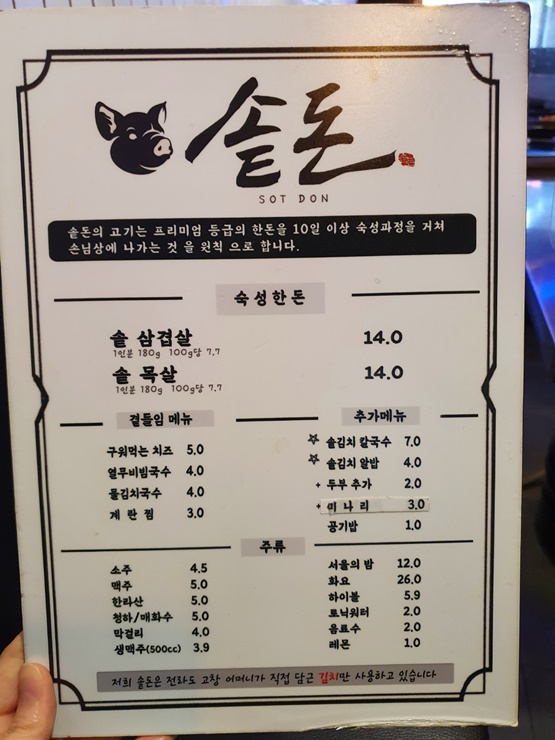 솥돈
SOT DON
솥돈의 고기는 프리미엄 등급의 한돈을 10일 이상 숙성과정을 거쳐
손님상에 나가는 것 을 원칙 으로 합니다.
숙성한돈
솥 삼겹살 14.0
1인분 180g 100g당 7.7
솥 목살 14.0
1인분 180g 100g당 7.7
곁들임 메뉴
구워먹는 치즈 5.0
열무비빔국수 4.0
물김치국수 4.0
계란찜 3.0
추가메뉴
☆ 솥김치 칼국수 7.0
☆ 솥김치 알밥 4.0
+ 두부 추가 2.0
+ 미나리 3.0
공기밥 1.0
주류
소주 4.5
맥주 5.0
한라산 5.0
청하/매화수 5.0
막걸리 4.0
생맥주(500cc) 3.9
서울의 밤 12.0
화요 26.0
하이볼 5.9
토닉워터 2.0
음료수 2.0
레몬 1.0
저희 솥돈은 전라도 고창 어머니가 직접 담근 김치만 사용하고 있습니다